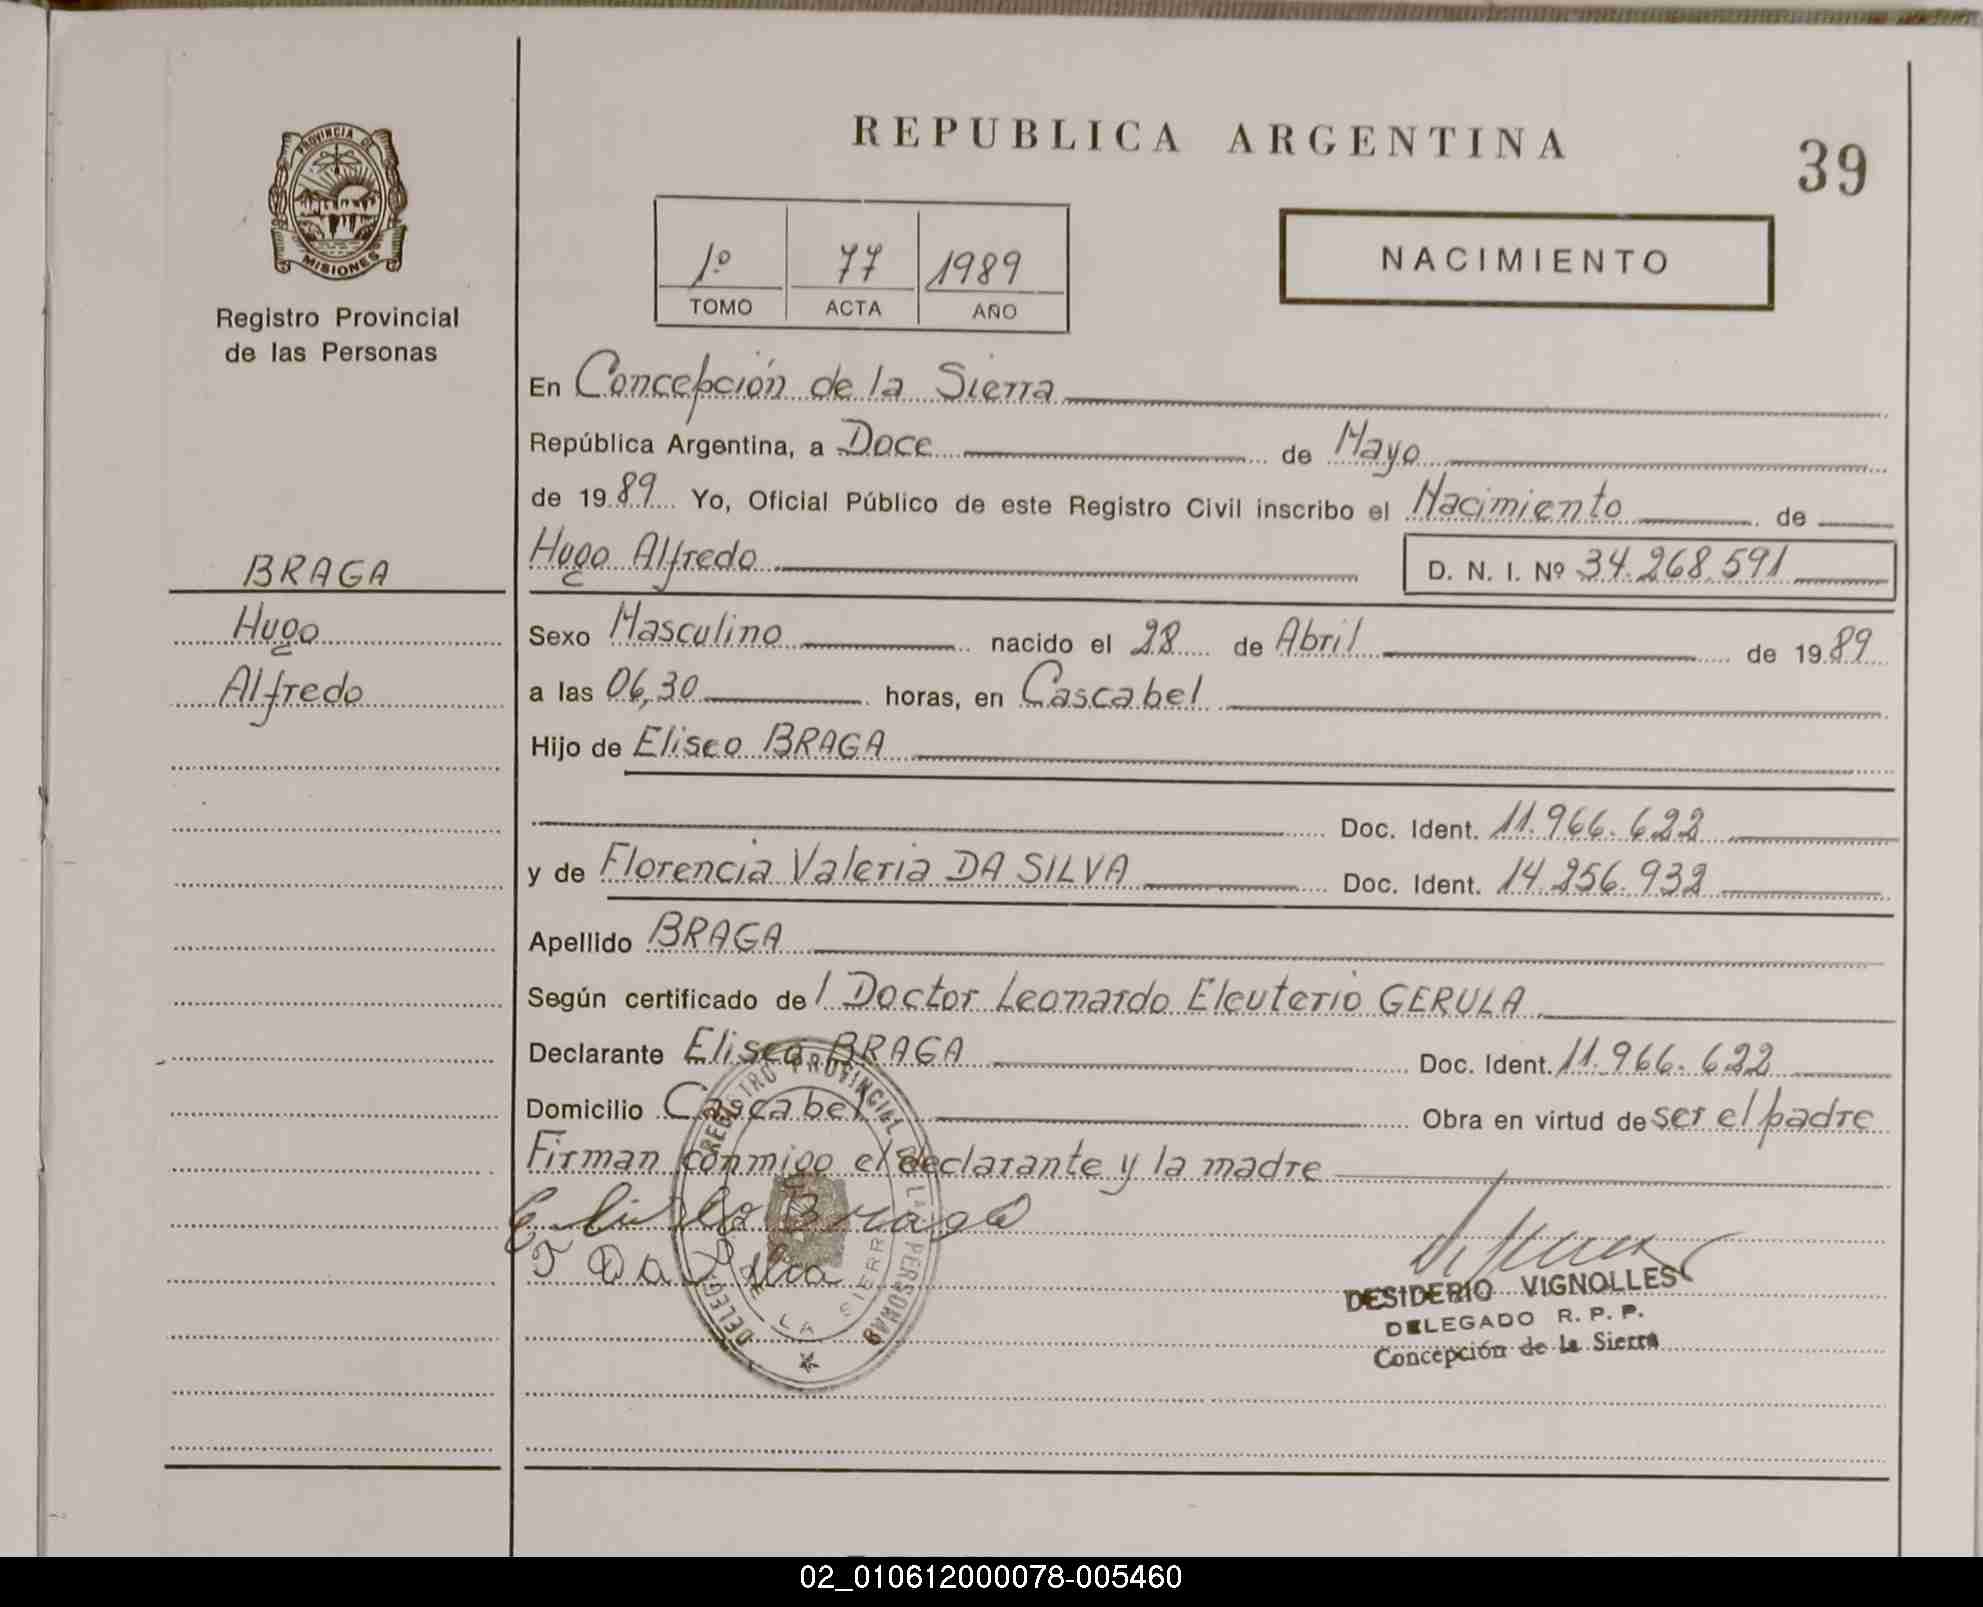 REPUBLICA ARGENTINA
39
PROVINCIA DE
MISIONES
Registro Provincial
de las Personas
1º 77 1989
TOMO ACTA AÑO
NACIMIENTO
BRAGA
Hugo
Alfredo
En Concepción de la Sierra
República Argentina, a Doce de Mayo
de 1989 Yo, Oficial Público de este Registro Civil inscribo el Nacimiento de
Hugo Alfredo D. N. I. Nº 34.268.591
Sexo Masculino nacido el 28 de Abril de 1989
a las 06,30 horas, en Cascabel
Hijo de Eliseo BRAGA
Doc. Ident. 11.966.622
y de Florencia Valeria DA SILVA Doc. Ident. 14.256.932
Apellido BRAGA
Según certificado del Doctor Leonardo Eleuterio GERULA
Declarante Eliseo BRAGA Doc. Ident. 11.966.622
Domicilio Cascabel Obra en virtud de ser el padre
Firman conmigo el declarante y la madre
Eliseo Braga
F Da Silva
REGISTRO PROVINCIAL DE LAS PERSONAS
DELEG.
DE LA SIERRA
DESIDERIO VIGNOLLES
DELEGADO R. P. P.
Concepción de la Sierra
02_010612000078-005460